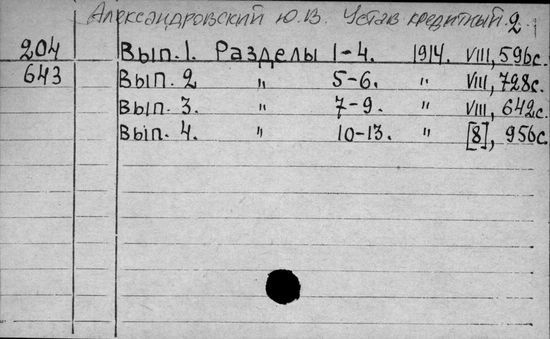 Александровский Ю.В. Устав кредитный. 2
204 Вып. 1. Разделы 1-4. 1914. VIII, 596с.
643 Вып. 2 " 5-6. " VIII, 728с.
Вып. 3. " 7-9. " VIII, 642с.
Вып. 4. " 10-13. " [8], 956с.